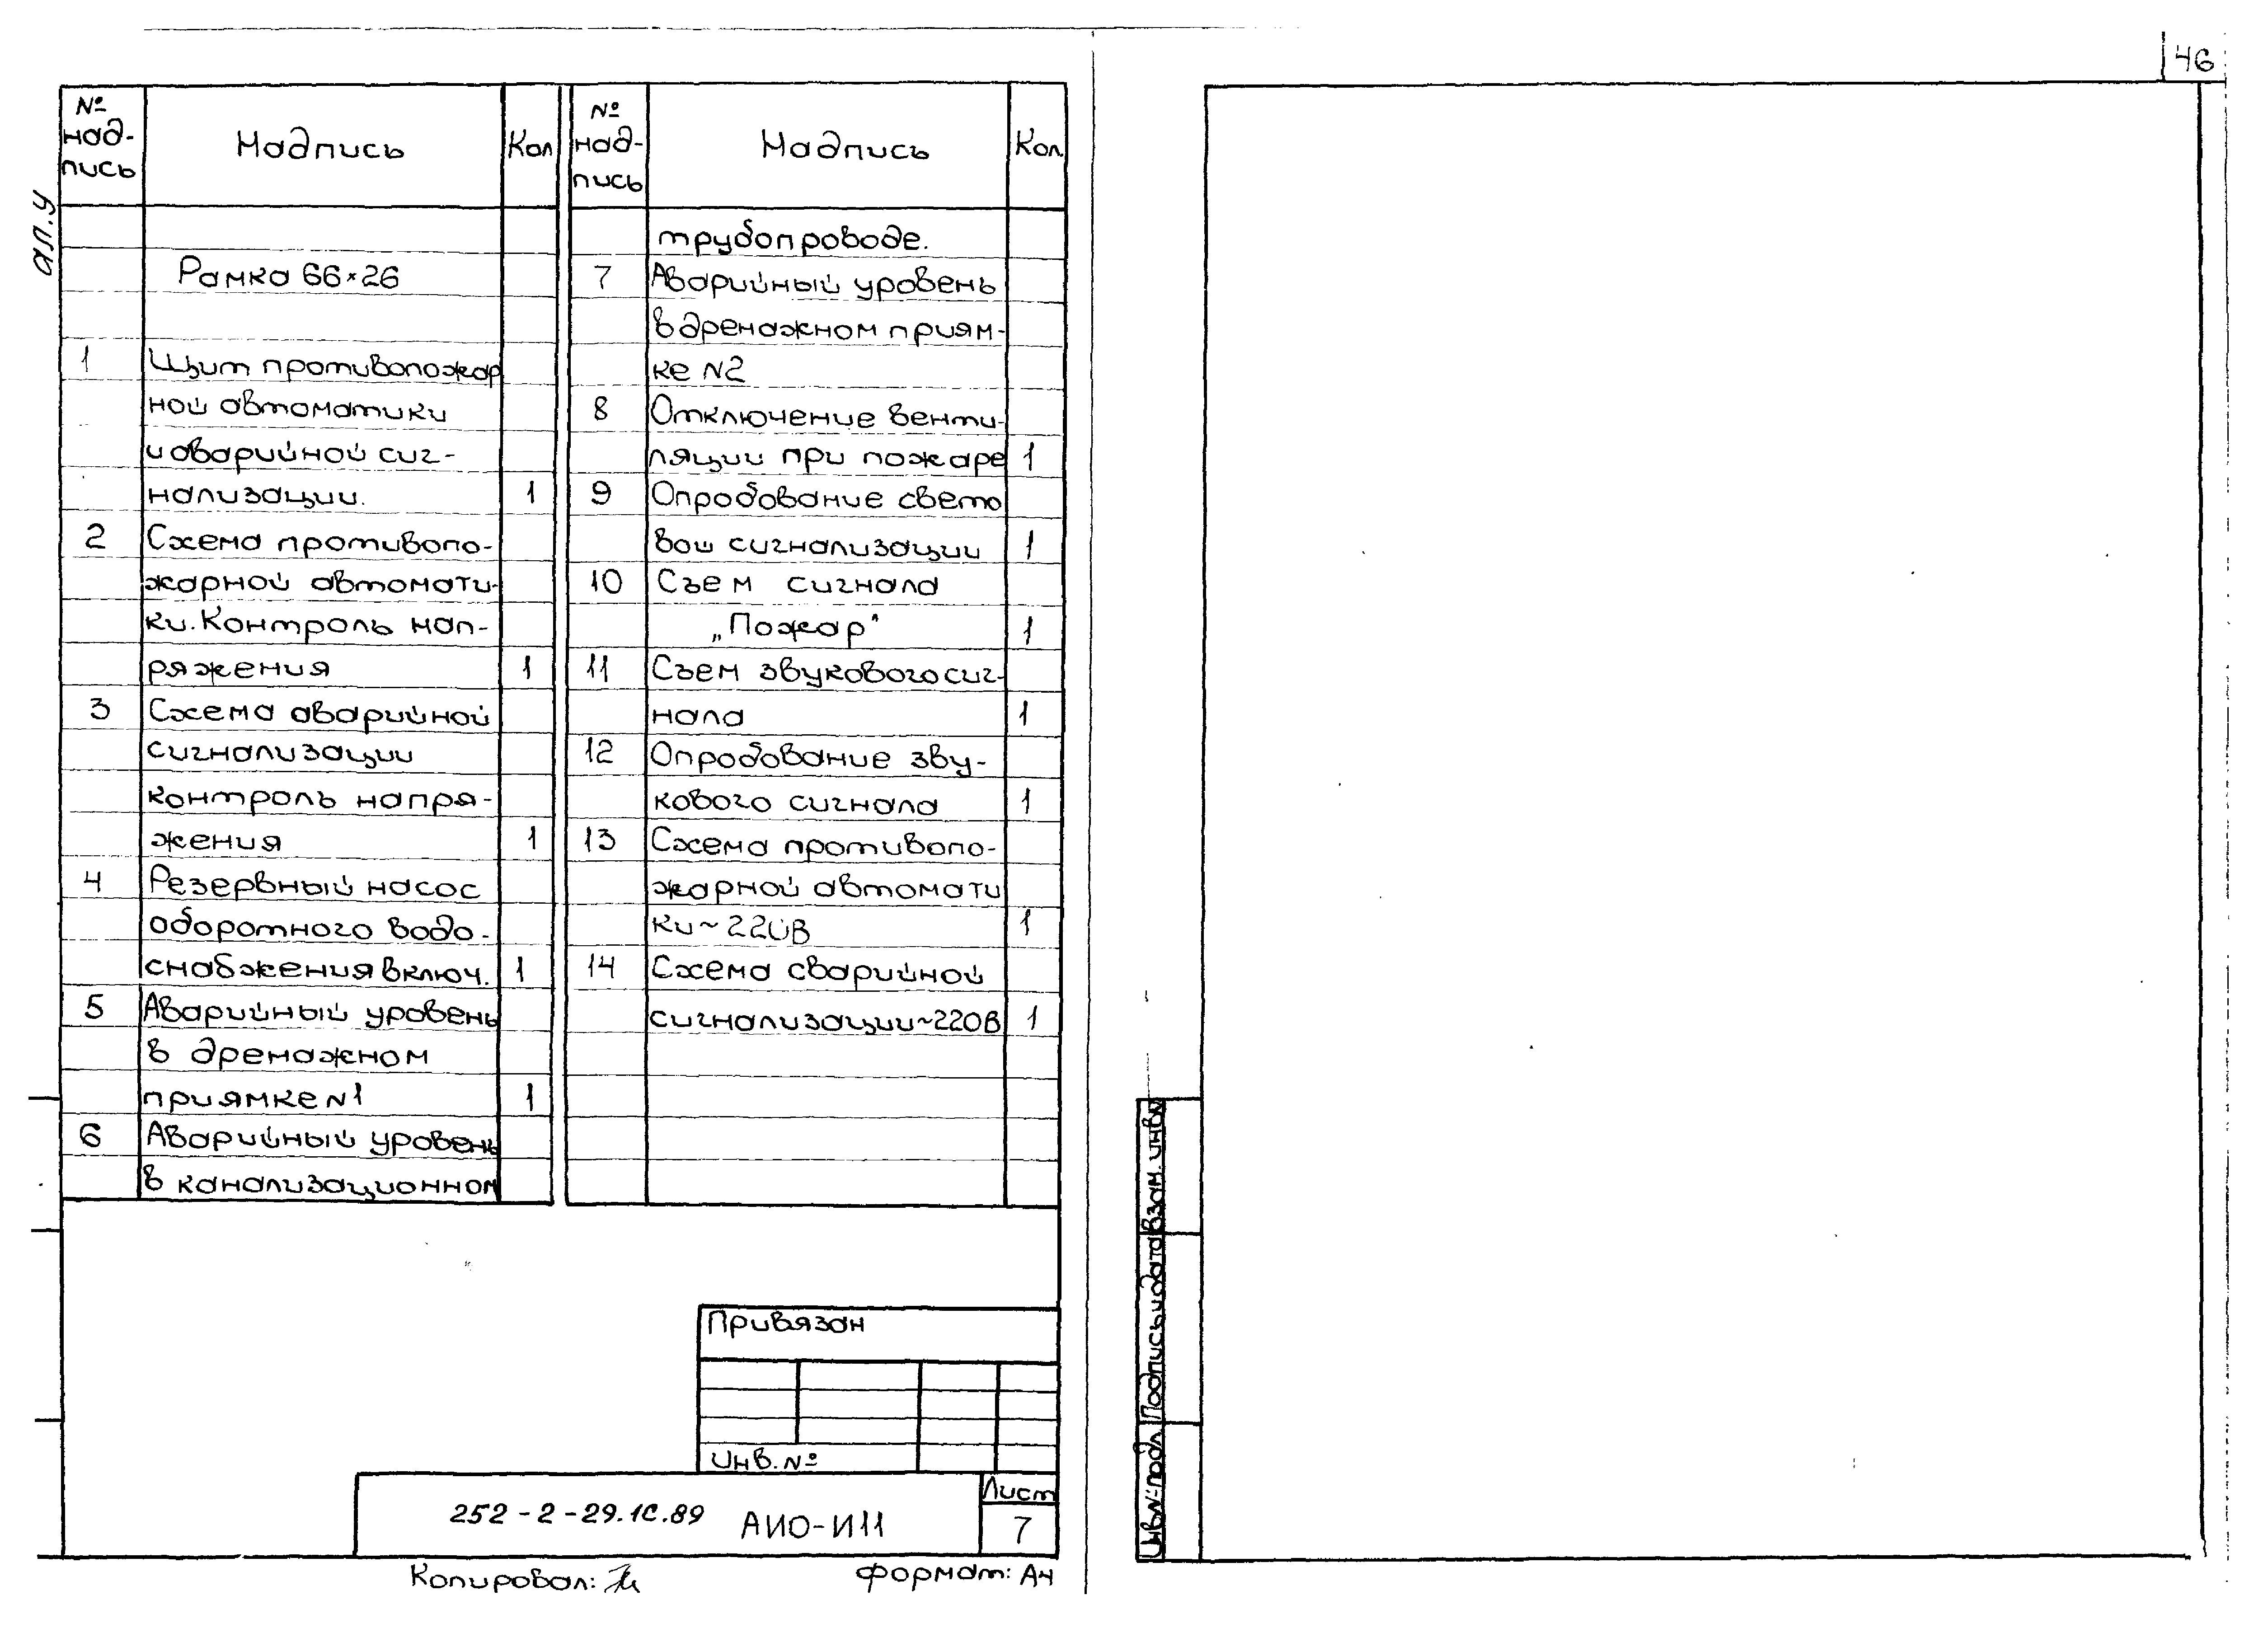 46
ал.У
№ над-пись
Надпись
Кол
Рамка 66×26
1 Щит противопожар
ной автоматики
и аварийной сиг-
нализации. 1
2 Схема противопо-
жарной автомати-
ки. Контроль нап-
ряжения 1
3 Схема аварийной
сигнализации
контроль напря-
жения 1
4 Резервный насос
оборотного водо-
снабжения включ. 1
5 Аварийный уровень
в дренажном
приямке N1 1
6 Аварийный уровень
в канализационном
№ над-пись
Надпись
Кол.
трубопроводе.
7 Аварийный уровень
в дренажном приям-
ке N2
8 Отключение венти-
ляции при пожаре 1
9 Опробование свето
вой сигнализации 1
10 Съем сигнала
„Пожар" 1
11 Съем звукового сиг-
нала 1
12 Опробование зву-
кового сигнала 1
13 Схема противопо-
жарной автомати
ки ~ 220В 1
14 Схема сварийной
сигнализации ~220В 1
Привязан
Инв. №
252-2-29.1С.89 АИО-И11
Лист
7
Копировал:
Формат: А4
Взам. инв.№
Подпись и дата
Инв.№ подл